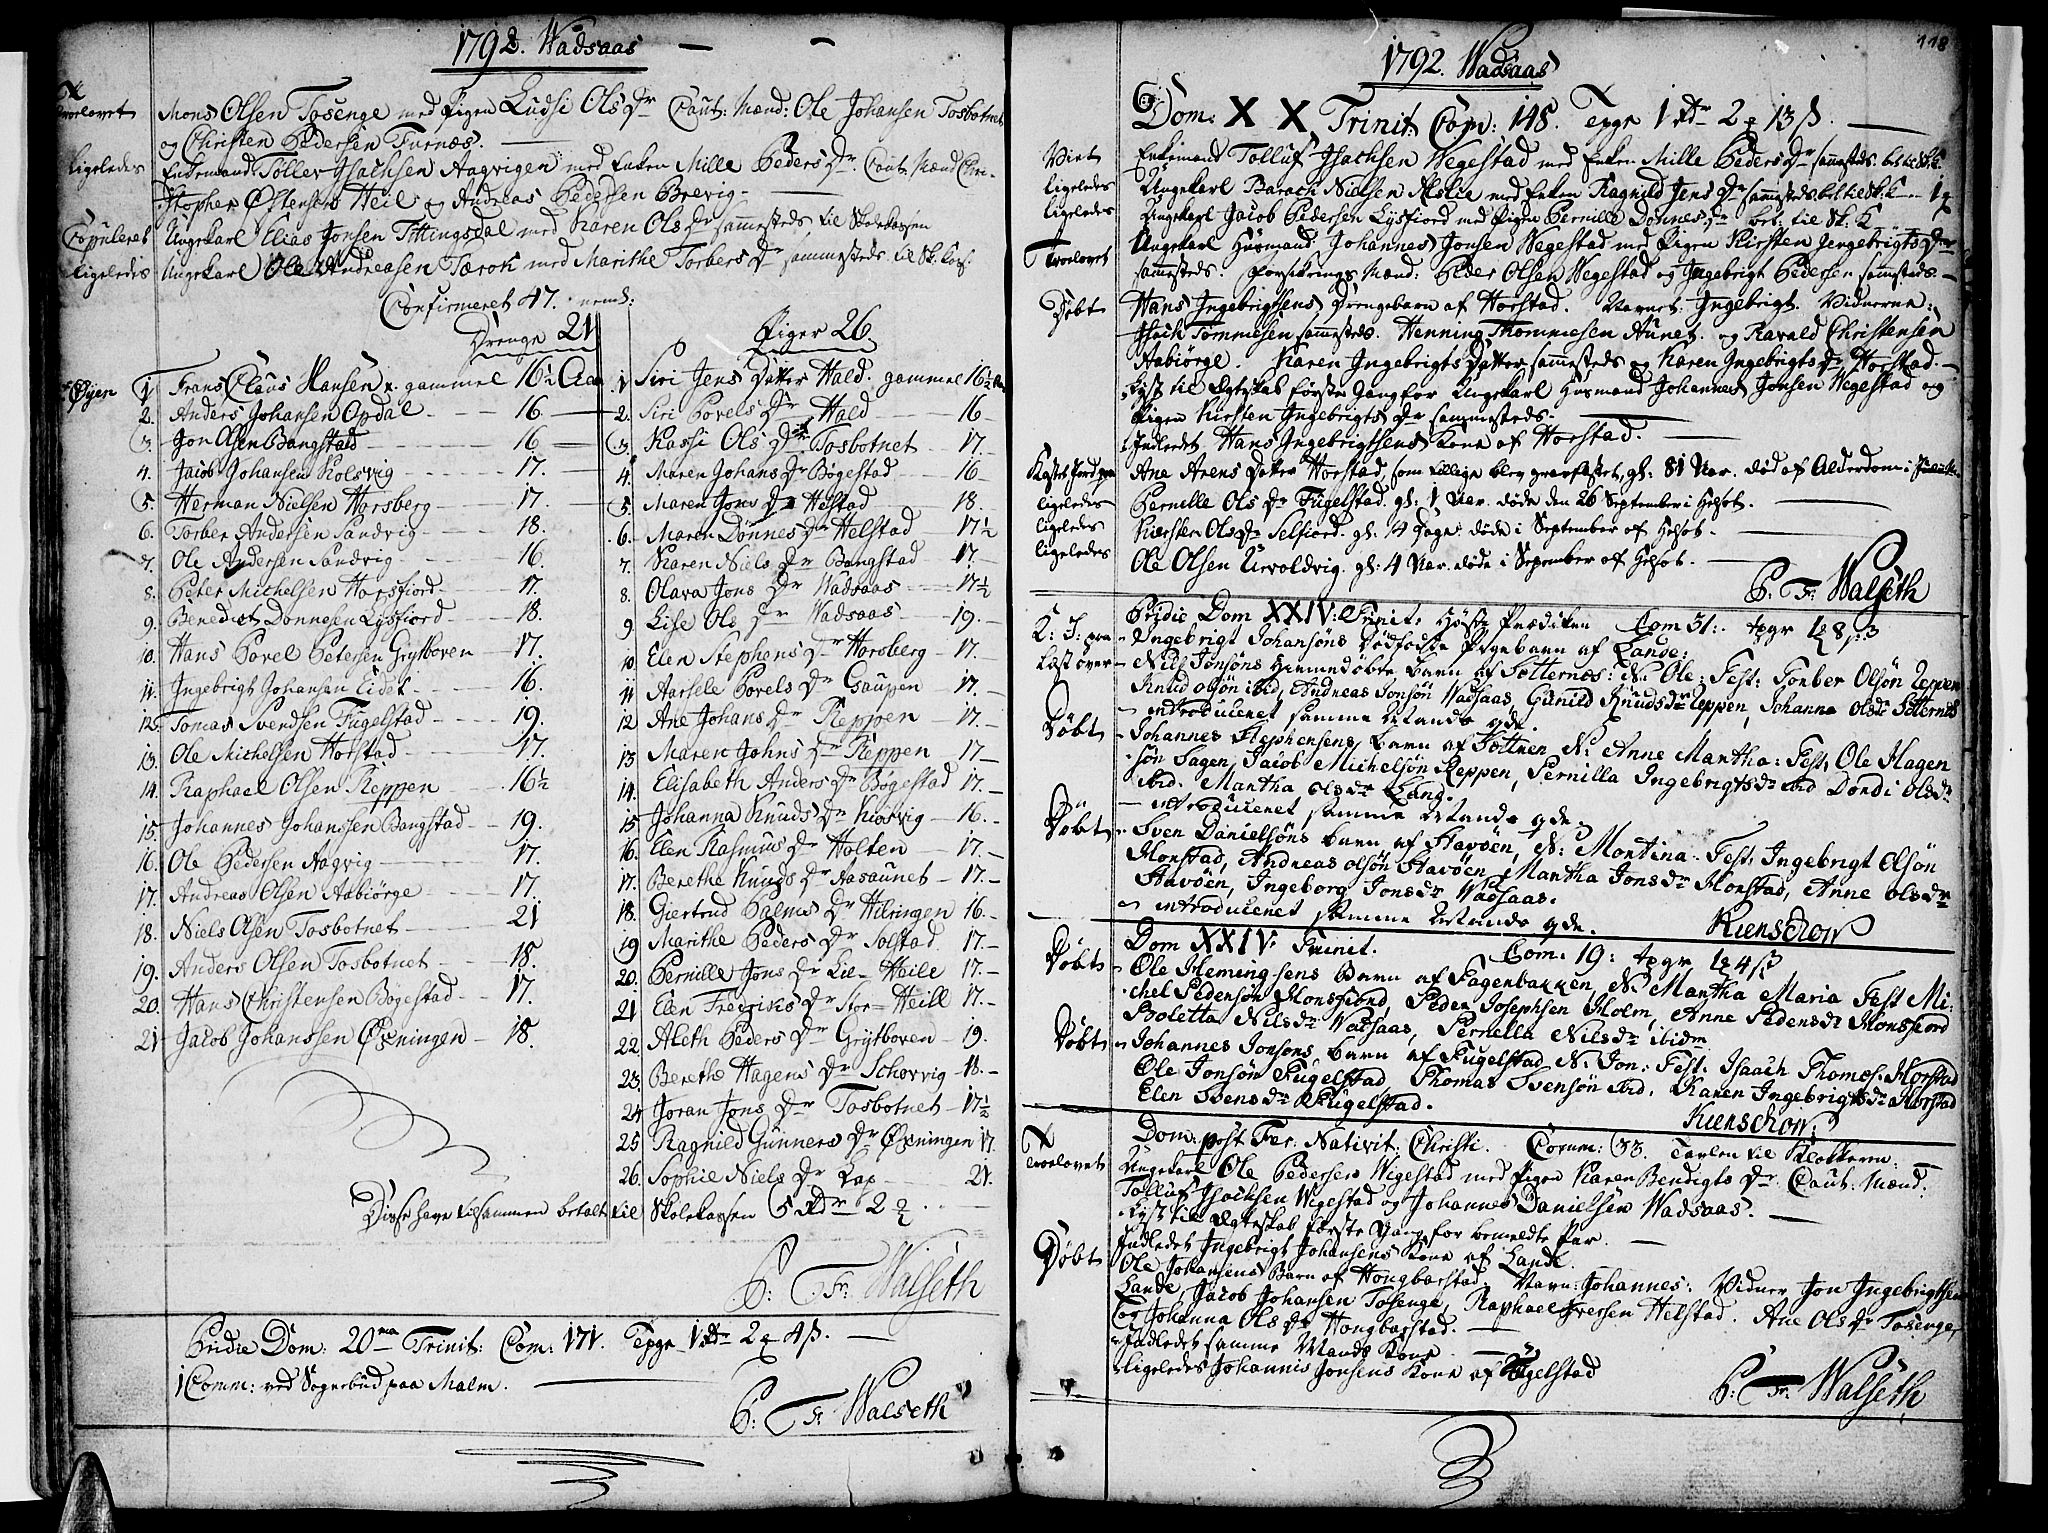 1792. Wadsaas
Troelovet Mons Olsen Tosenge med Pigen Ludsi Ols Dr Caut: Mænd: Ole Johansen Tosbotnet
og Christen Pedersen Furnæs.
Ligeledes Enkemand: Toller Isachsen Aagvigen med Enken Mille Peders Dr Caut: Mænd Chri-
stopher Østensen Heil og Andreas Pedersen Brevig.
Copuleret Ungekarl Elias Jonsen Tittingsdal med Karen Ols Dr sammesteds, til Skolekassen
Ligeledes Ungekarl Ole Andreasen Tærok med Marithe Torbers Dr sammesteds til Sk: Kas:
Confirmeret 47. neml:
Drenge 21
1 Frans Claus Hansen gammel 16½ Aar
2. Anders Johansen Opdal 16
3. Jon Olsen Bangstad 16
4. Jacob Johansen Kolsvig 17.
5. Herman Nielsen Horsberg 17
6. Torber Andersen Sandvig 18.
7. Ole Andersen Sandvig 16.
8. Peter Michelsen Horsfiord 17.
9. Benedict Dønnesen Lysfiord 18.
10. Hans Povel Petersen Grytboven 17.
11. Ingebrigt Johansen Eidet 16.
12. Tomas Svendsen Fugelstad 19.
13. Ole Michelsen Horstad 17.
14. Raphael Olsen Reppen 16½
15 Johannes Johanssen Bangstad 19.
16. Ole Pedersen Aagvig 17.
17. Andreas Olsen Aabiørge 17.
18. Niels Olsen Tosbotnet 21
19. Anders Olsen Tosbotnet 18.
20. Hans Christensen Bøgestad 17.
21 Jacob Johanssen Øxningen 18.
Piger 26
1 Siri Jens Datter Hald. gammel 16½ Aar
2. Siri Povels Dr Hald 16
3. Kassi Ols Dr Tosbotnet 17.
4. Maren Johans Dr Bøgestad 16
5. Maren Jons Dr Helstad 18.
6. Maren Dønnes Dr Helstad 17½
7. Karen Niels Dr Bangstad 17.
8. Olava Jons Dr Wadsaas 17½
9. Lise Ols Dr Wadsaas 19.
10. Elen Stephens Dr Horsberg 17.
11 Aarsele Povels Dr Gaupen 17.
12 Ane Johans Dr Reppen 17.
13 Maren Johns Dr Reppen 17
14. Elisabeth Anders Dr Bøgestad 17.
15 Johanna Knuds Dr Kiørvig 16.
16. Elen Rasmus Dr Holten 17.
17. Berethe Knuds Dr Aasaunet 17.
18. Giertrud Palms Dr Hilringen 16.
19 Marithe Peders Dr Solstad. 17.
20. Pernille Jons Dr Lil-Heile 17.
21 Elen Fredriks Dr Stor-Heill 17.
22. Aleth Peders Dr Grytboven 19.
23. Berethe Hagens Dr Schorvig 18.
24 Joran Jons Dr Tosbotnet 17½
25 Ragnild Gunners Dr Øxningen 17.
26. Sophie Niels Dr Lap 21.
Disse have tilsammen betalt til Skolekassen 5 Rdr 2
P: Fr: Walseth
Pridie Dom: 20ma Trinit: Com: 171. Tpgr 1 Rdr 2 4ß.
1 Comm: ved Sognebud paa Malm.
P: Fr: Walseth
118
1792. Wadsaas
Dom: XX Trinit: Com: 148. Tpgr 1 Rdr 2 13ß.
Viet Enkemand Tolluf Isachsen Wegestad med Enken Mille Peders Dr sammesteds. bet: til Sk: K.
ligeledes Ungekarl Barach Nielsen Alslie med Enken Ragnild Jens Dr sammesteds. bet. til Sk: K
ligeledes Ungekarl Jacob Pedersen Lysfiord med Pigen Pernille Dønnes Dr bet: til Sk: K
Troelovet Ungekarl Husmand Johannes Jonsen Wegestad med Pigen Kirsten Ingebrigts Dr
sammesteds. Forsikrings Mænd: Peder Olsen Wegestad og Ingebrigt Pedersen sammesteds.
Døbt Hans Ingebrigtsens Drengebarn af Horstad. Navnet: Ingebrigt. Vidnerne:
Isach Tommesen sammesteds. Henning Thommesen Aunet. og Harald Christensen
Aabiørge. Karen Ingebrigts Datter sammesteds og Karen Ingebrigts Dr Horstad.
Lyst til Ægteskab første Gang for Ungekarl Husmand Johannes Jonsen Wegestad og
Pigen Kirsten Ingebrigts Dr sammesteds.
Indledet Hans Ingebrigtsens Kone af Horstad.
Kastet Jord paa Ane Arens Datter Horstad som tillige blev gravfæstet, gl: 81 Aar. død af Alderdom i
ligeledes Pernille Ols Dr Fugelstad. gl: 1 Aar. døde den 26 September i Helsot.
ligeledes Kiersten Ols Dr Selfiord. gl: 4 Dage. døde i September af Helsot.
ligeledes Ole Olsen Urvoldvig. gl: 4 Aar. døde i September af Helsot.
P: Fr: Walseth
Pridie Dom XXIV: Trinit: Høst Prædiken Com 31: tpgr 1 8ß3
K: J: paa Ingebrigt Johansøns dødfødte Pigebarn af Lande:
Læst over Nils Jonsøns hiemmedøbte barn af Sotternes: N: Ole: Test: Torber Olsøn Reppen
Knud olsøn ibid, Andreas Jonsøn Wadsaas, Gunild Knudsdr Reppen, Johanna olsdr Sotternes
introduceret samme Mands qde.
Døbt Johannes Stephensens barn af Sottrien N: Anne Martha: Test: Ole Hagen
søn Sagen, Jacob Michelsøn Reppen, Pernilla Ingebrigtsdr ibid Dordi olsdr
ibid. Martha olsdr Lang.
introduceret samme Mands qde.
Døbt Sven Danielsøns barn af Havøen, N: Martina. Test: Ingebrigt Olsøn
Horstad, Andreas olsøn Havøen, Martha Jonsdr Horstad, Anne olsdr
Havøen, Ingeborg Jonsdr Wadsaas.
introduceret samme Mands qde. Kienschow
Dom XXIV: Trinit. Com: 19: tpgr 1 4ß
Døbt Ole Hemingsens Barn af Fagerbakken, N: Martha Maria Test Mi:
chel Pedersøn Horsfiord, Peder Josephsen Holm, Anne Pedersdr Horsfiord
Boletta Nilsdr Wadsaas, Pernella Nilsdr ibidm
Døbt Johannes Jonsøns barn af Fugelstad, N: Jon: Test: Isaach Thomes: Horstad
Ole Jonsøn Fugelstad, Thomas Svensøn ibid, Karen Ingebrigtsdr Horstad
Elen Svensdr Fugelstad.
Kienschow:
Dom: post Fer: Nativit: Christi. Comm: 33. Tavlen til Klokkeren:
Troelovet Ungekarl Ole Pedersen Wigestad med Pigen Karen Bendigts Dr. Caut: Mænd:
Tolluf Isachsen Wigestad og Johannes Danielsen Wadsaas.
Lyst til Ægteskab første Gang for bemeldte Par.
Indledet Ingebrigt Johansens Kone af Lande.
Døbt Ole Johansens Barn af Hongbarstad. Navn: Johannes: Vidner Jon Ingebrigtsen
Lande, Jacob Johansen Tosenge, Raphael Iversen Helstad. Ane Ols Dr Tosenge,
og Johanna Ols Dr Hongbarstad.
Indledet samme Mands Kone.
ligeledes Johannis Jonsens Kone af Fugelstad
P: Fr: Walseth